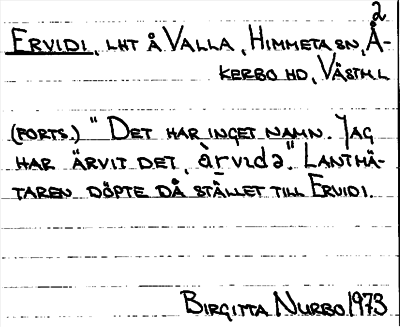 2
ERVIDI, LHT Å VALLA, HIMMETA SN, Å-
KERBO HD, VÄSTML
(FORTS.) "DET HAR INGET NAMN. JAG
HAR ÄRVIT DET, àrvıdə". LANTMÄ-
TAREN DÖPTE DÅ STÄLLET TILL ERVIDI.
BIRGITTA NURBO 1973